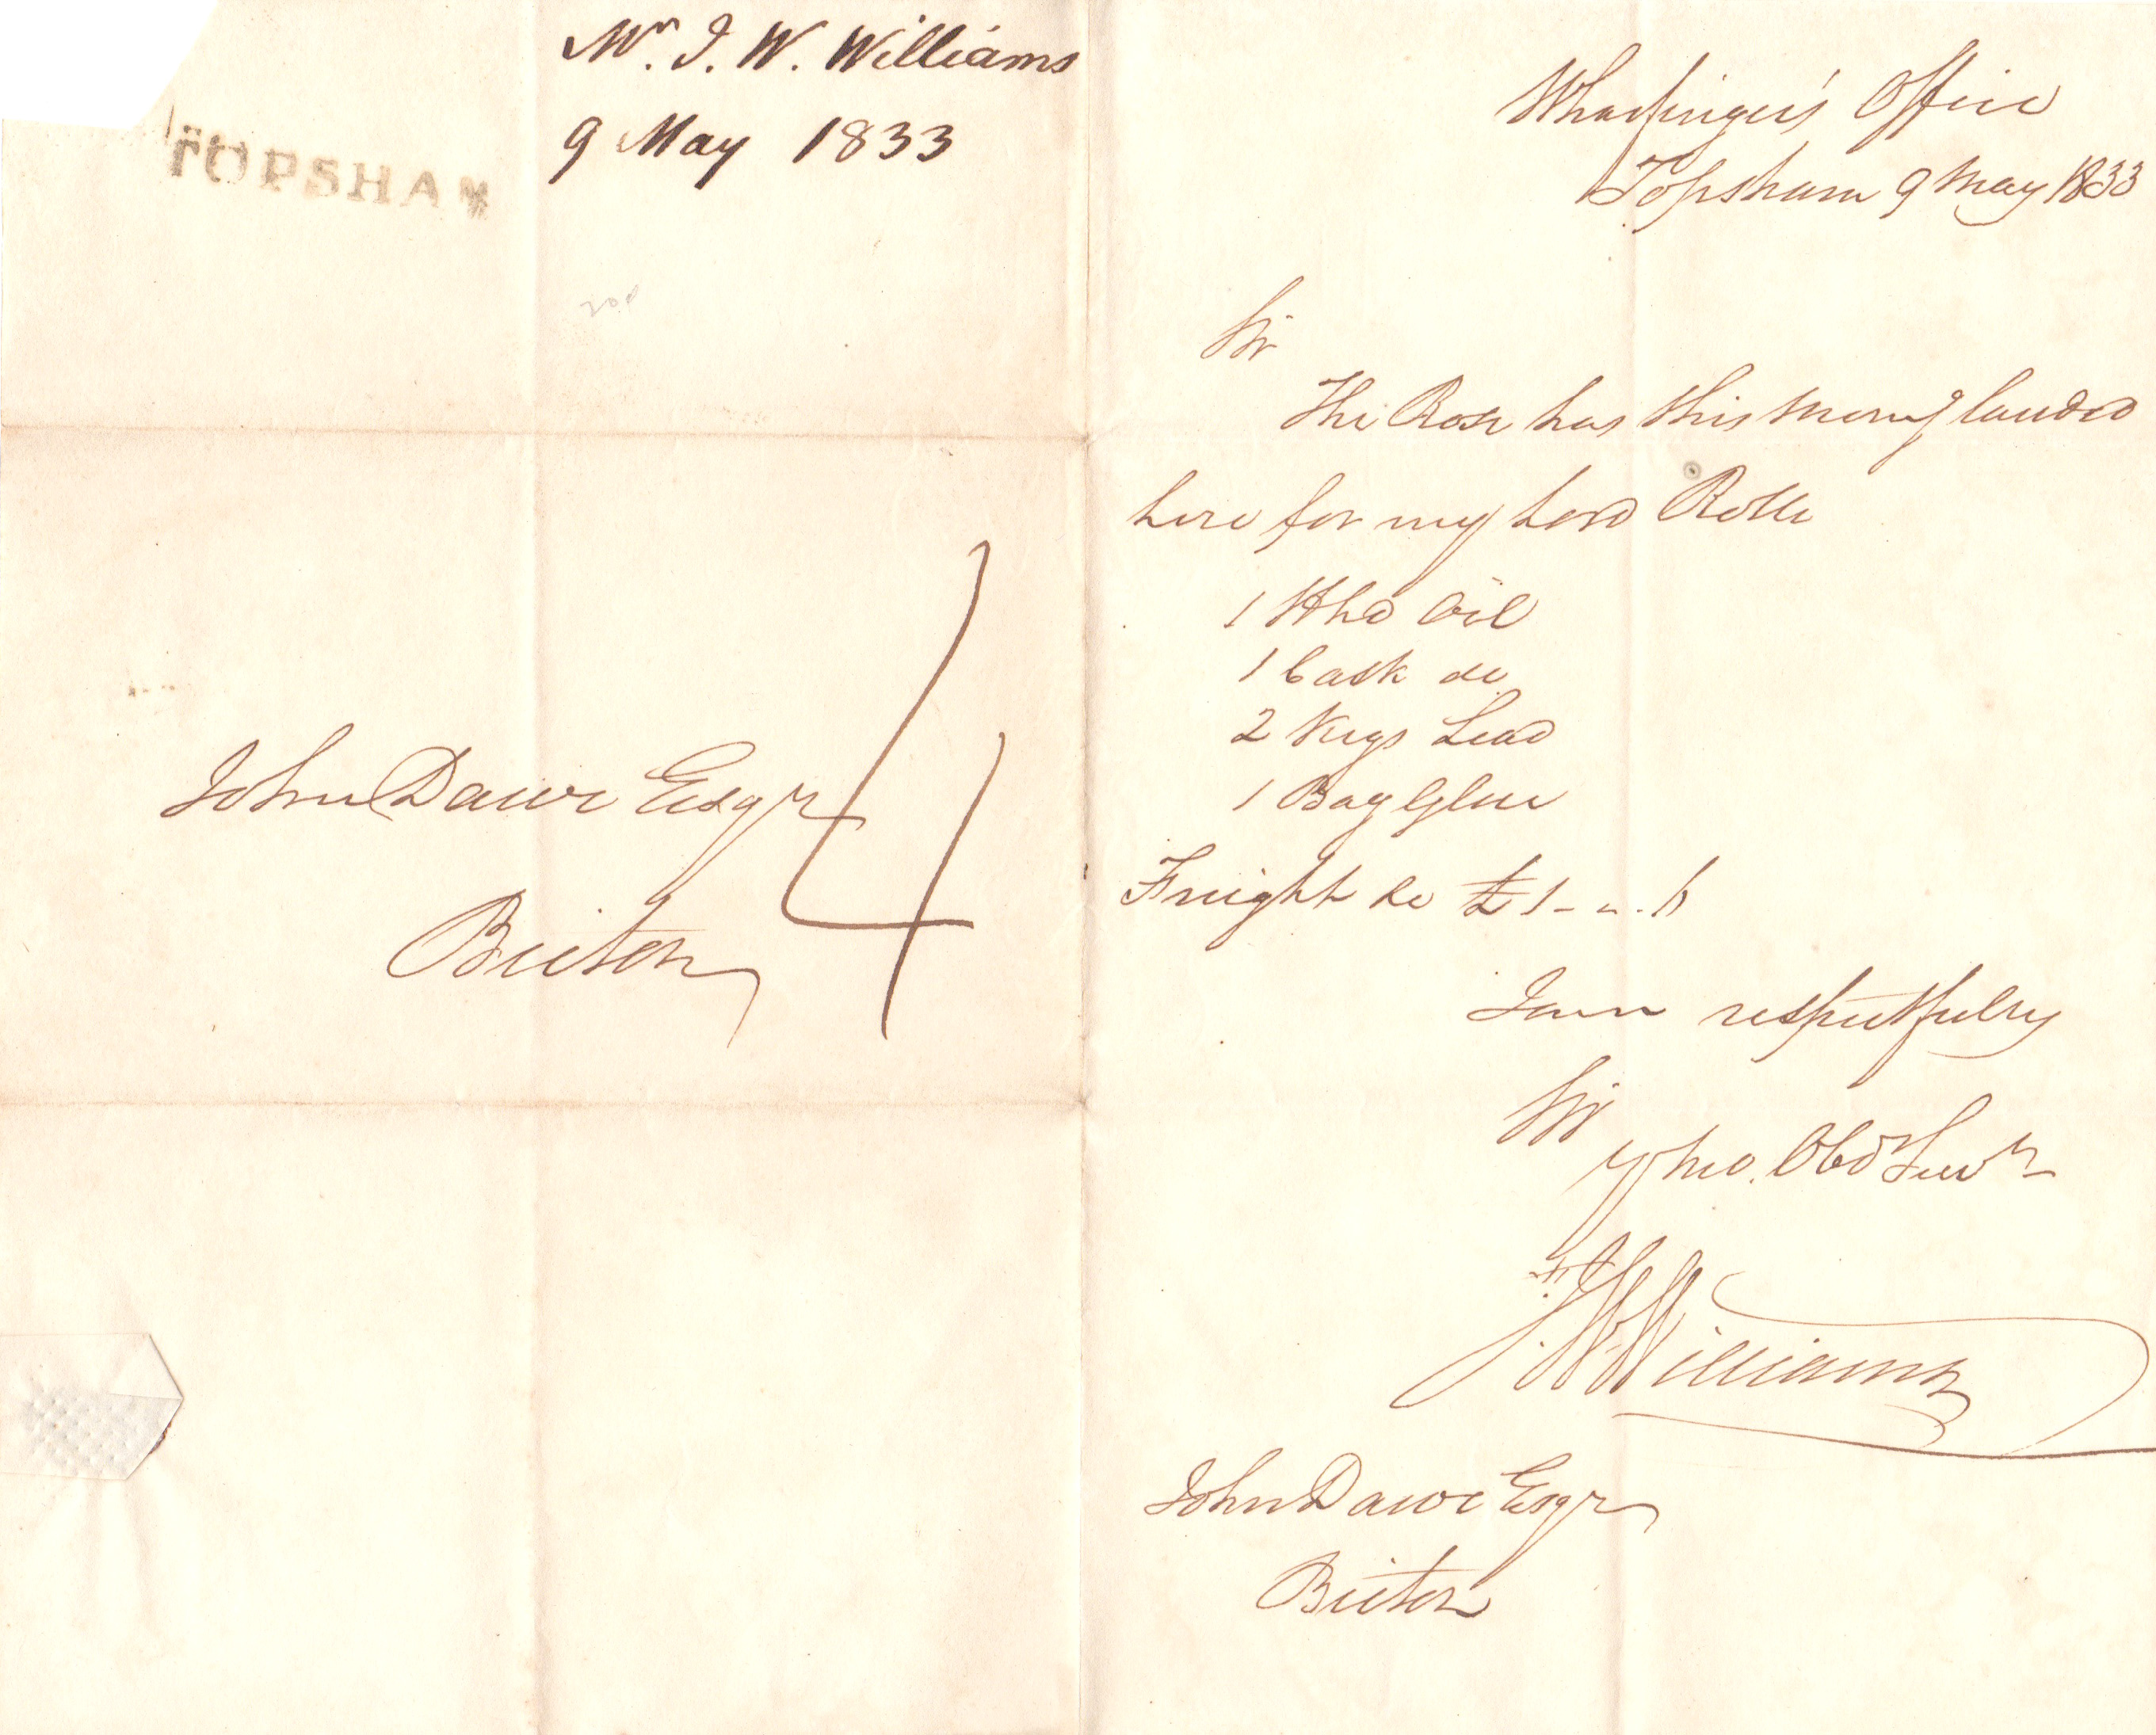 Mr. J. W. Williams
9 May 1833
TOPSHAM
John Dawe Esqr
Bicton
4
Wharfinger's Office
Topsham 9 May 1833
Sir
The Rose has this morng landed
here for my Lord Rolle
1 Hhd Oil
1 Cask do
2 Kegs Lead
1 Bag Glue
Freight do £1 - " . 6
I am respectfully
Sir
Obd Servt
J. W. Williams
John Dawe Esqr
Bicton